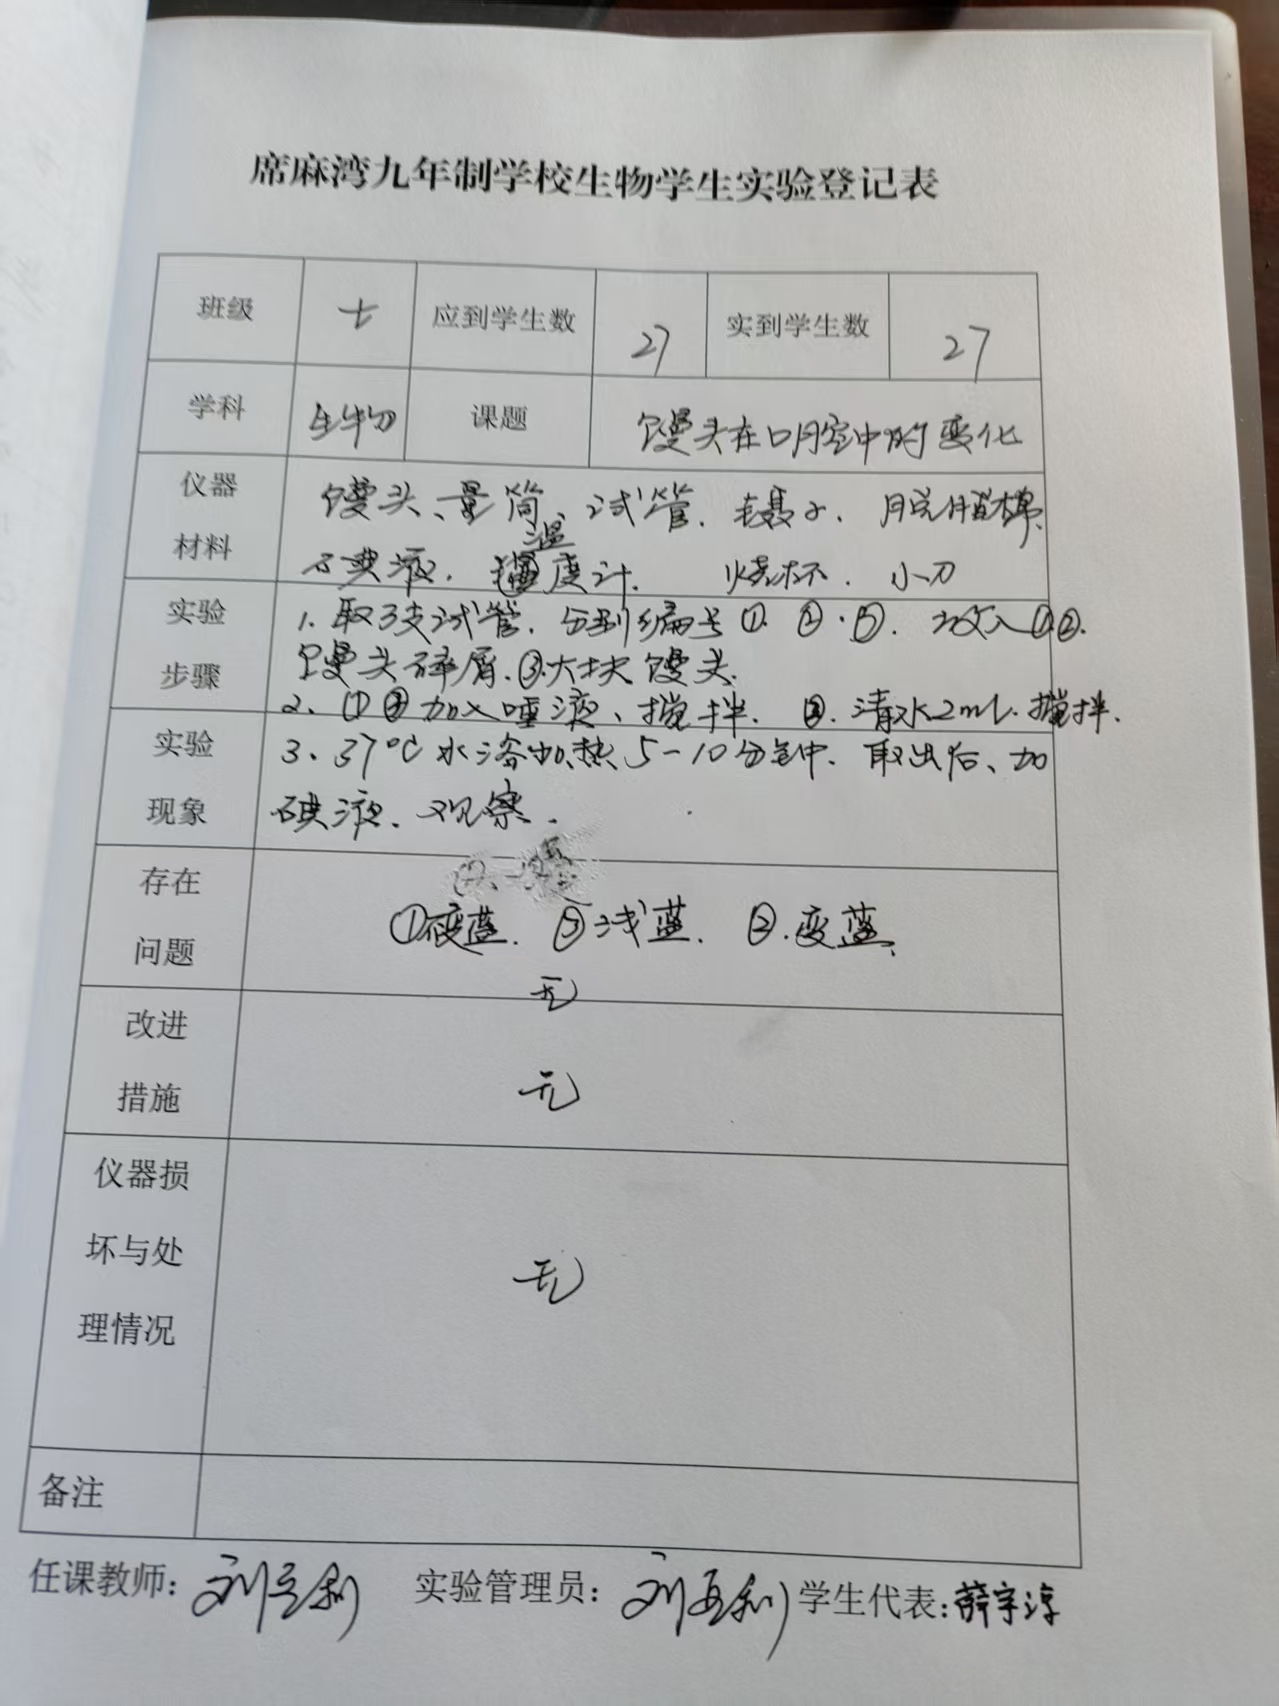 席麻湾九年制学校生物学生实验登记表
班级 七 应到学生数 27 实到学生数 27
学科 生物 课题 馒头在口腔中的变化
仪器 馒头、量筒、试管、镊子、脱脂棉、
材料 碘液、温度计、烧杯、小刀
实验 1. 取3支试管,分别编号①、②、③、放入①②.
步骤 馒头碎屑.③.大块馒头.
2、①③加入唾液、搅拌. ②.清水2mL.搅拌.
实验 3、37℃水浴加热5-10分钟. 取出后、加
现象 碘液、观察.
存在
问题 ①变蓝. ③浅蓝. ②.变蓝.
无
改进
措施 无
仪器损
坏与处 无
理情况
备注
任课教师: 实验管理员: 学生代表:薛宇淳